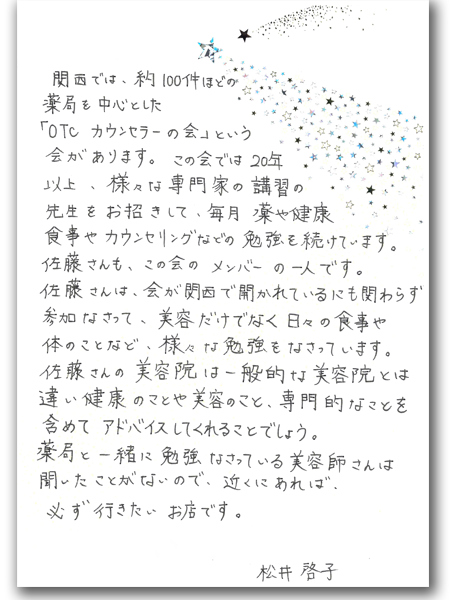 関西では、約100件ほどの
薬局を中心とした
「OTC カウンセラーの会」という
会があります。この会では20年
以上、様々な専門家の講習の
先生をお招きして、毎月 薬や健康
食事やカウンセリングなどの勉強を続けています。
佐藤さんも、この会のメンバーの一人です。
佐藤さんは、会が関西で開かれているにも関わらず
参加なさって、美容だけでなく日々の食事や
体のことなど、様々な勉強をなさっています。
佐藤さんの美容院は一般的な美容院とは
違い健康のことや美容のこと、専門的なことを
含めてアドバイスしてくれることでしょう。
薬局と一緒に勉強なさっている美容師さんは
聞いたことがないので、近くにあれば、
必ず行きたいお店です。
松井 啓子